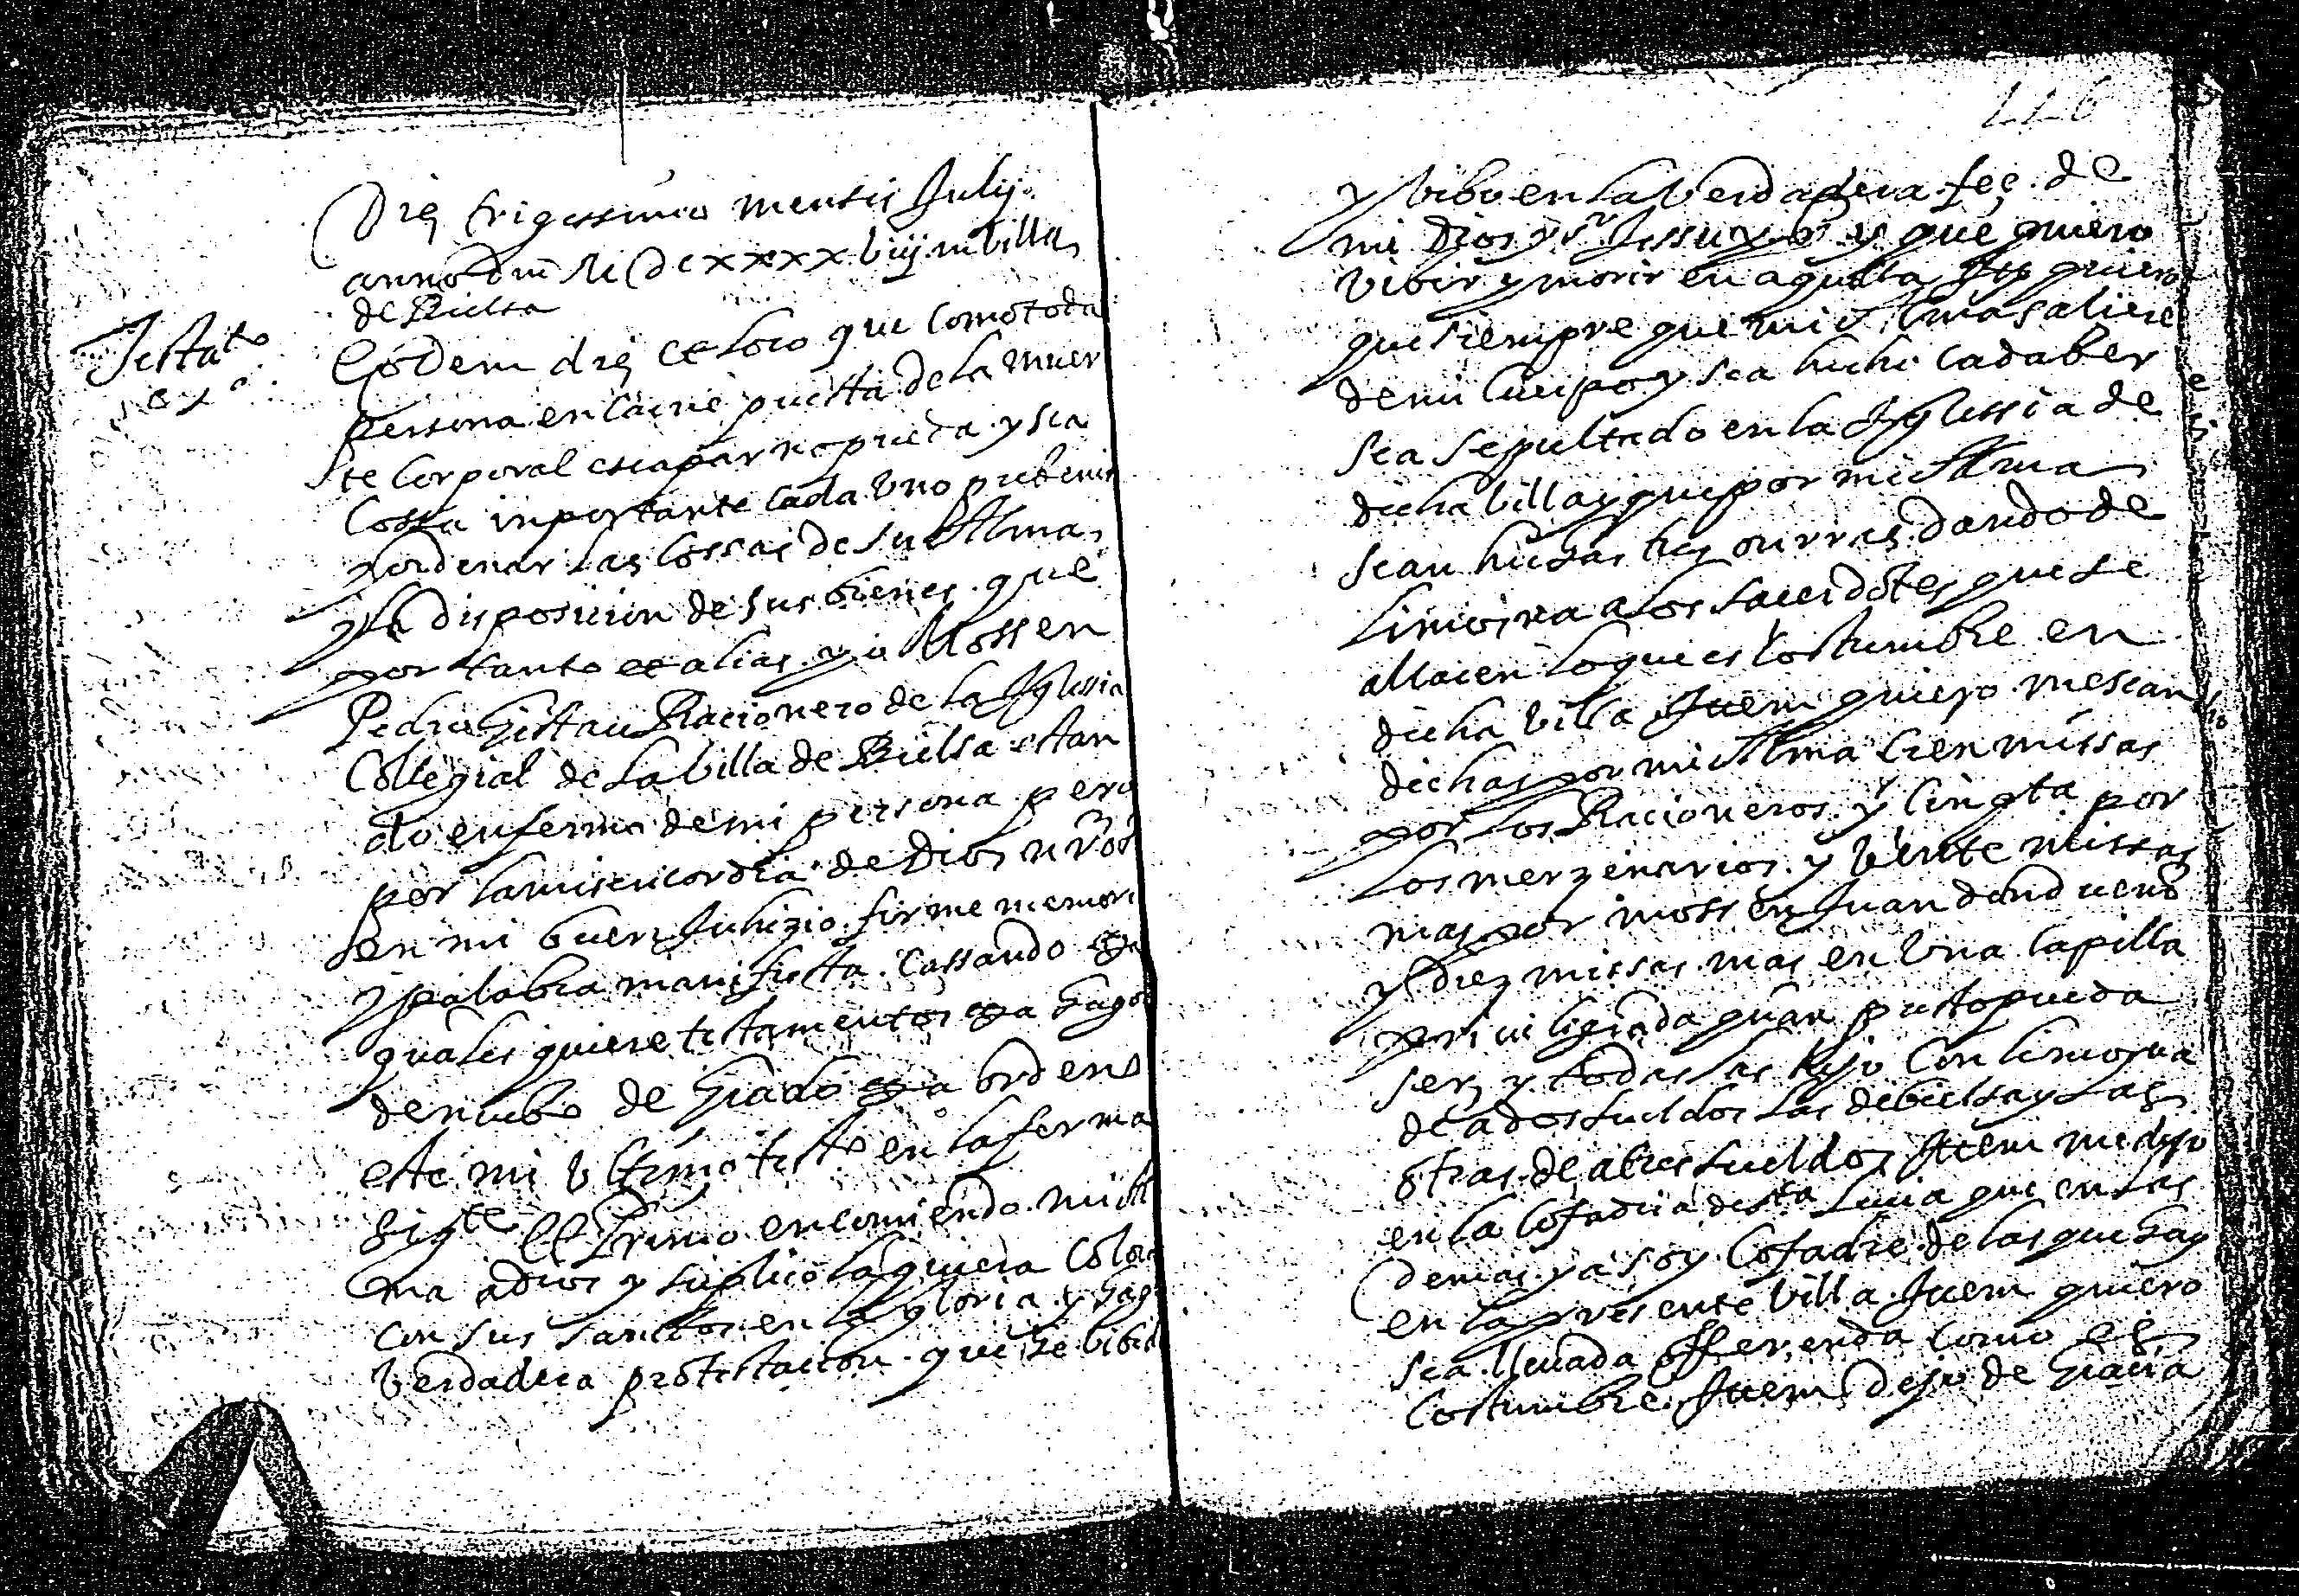 Die trigessimo mensis Julij
anno Dni MDCxxxxbiij in billa
de Bielsa
Testa.to
Eodem die et loco que como toda
persona en carne puesta de la muer
te corporal escapar no pueda y sea
cossa inportante cada uno prebenir
y ordenar las cossas de su Alma
y la disposicion de sus bienes que
por tanto et alias yo Mossen
Pedro Gistau Racionero de la Iglessia
Collegial de la billa de Bielsa estan
do enfermo de mi persona pero
por la misericordia de Dios nro sr
en mi buen Juhizio firme memori
y palabra manifiesta. Cassando &a
quales quiere testamentos &a hago
de nuebo de Grado &a ordeno
este mi ultimo testto en la forma
sigte Et Primo encomiendo mi Al
ma a dios y suplico la quiera Coloc
con sus sanctos en la gloria y hag
berdadera protestacion que he bibid
116
y bibo en la berdadera fee de
mi Dios y sr Jessu xpo y que quiero
bibir y morir en aquella Ite quiero
que siempre que mi Alma saliere
de mi Cuerpo y sea hecho cadaber
sea sepultado en la Iglessia de
dicha billa y que por mi Alma
sean hechas tres onrras dando de
limosna a los sacerdotes que se
allaren lo que es costumbre en
dicha billa Item quiero me sean
dichas por mi Alma Cien missas
por los Racioneros y Cinqta por
los merzenarios y bente missas
mas por mossen Juan dond ueno
y diez missas mas en una capilla
priuiligiada quan presto pueda
ser y todas las dejo con limosna
de a dos sueldos las de bielsa y las
otras de a tres sueldos Item me dejo
en la Cofadria de sta Lucia que en las
demas ya soy Cofadre de las que hay
en la presente billa Item quiero
sea lleuada offerenda como es
Costumbre Item dejo de Gracia